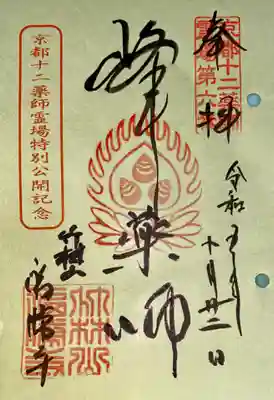 奉拝
京都十二薬
霊場第六
令和五年
十月廿二日
峰薬師
竹林山
福勝寺
京都十二薬師霊場特別公開記念